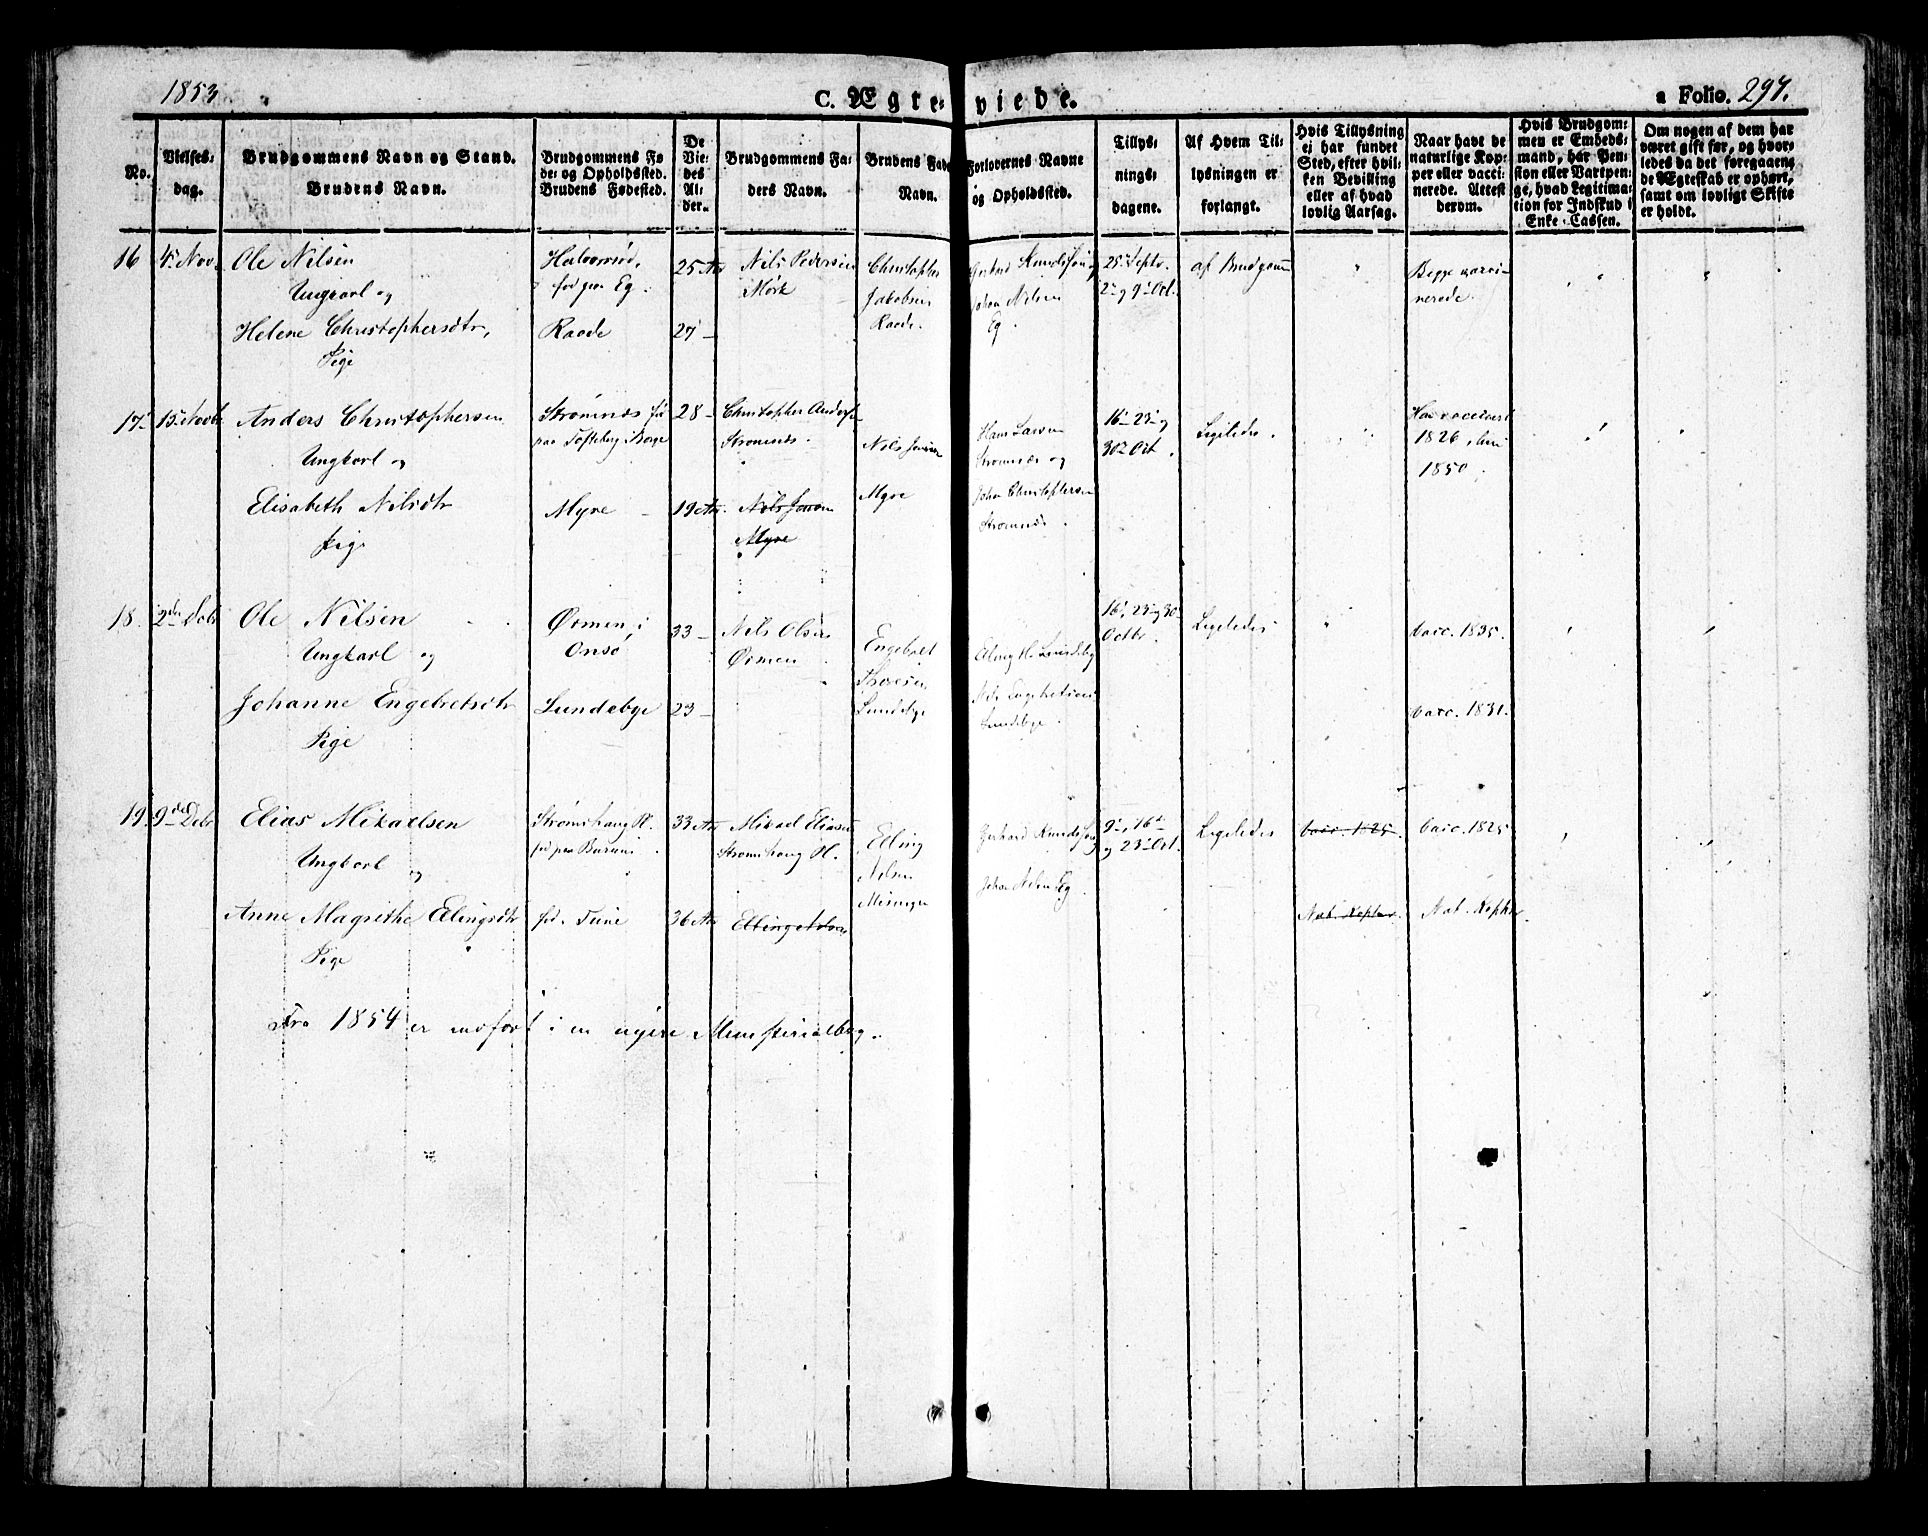 1853
C. Ægte-viede.
a Folio. 297.
No.
Vielses-
dag.
Brudgommens Navn og Stand.
Brudens Navn.
Brudgommens Fø
de- og Opholdssted.
Brudens Fødested.
De
Vie-
des
Al-
der.
Brudgommens Fa-
ders Navn.
Brudens Fade
Navn.
Forlovernes Navne
og Opholdssted.
Tillys-
nings-
dagene.
Af Hvem Til-
lysningen er
forlangt.
Hvis Tillysning
ei har fundet
Sted, efter hvil-
ken Bevilling
eller af hvad
lovlig Aarsag.
Naar have de
naturlige Kop-
per eller vacci-
nerede. Attest
derom.
Hvis Brudgom-
men er Embeds-
mand, har Pen-
sion eller Vartpen-
ge, hvad Legitima-
tion for Indskud i
Enke-Cassen.
Om nogen af dem har
været gift før, og hvor-
ledes da det foregaaen-
de Ægteskab er ophørt,
samt om lovligt Skifte
er holdt.
16 4. Nov. Ole Nilsen
Ungkarl og
Helene Christophersdtr,
Pige
fød paa Eg.
Raade
25 Aar
27 -
Nils Pedersen
Mørk
Christopher
Jakobsen
Raade.
Gerhard Knudsen
Johan Nilsen
Eg.
25 Septr.
2 og 9 Oct.
af Brudgom
Begge vacci-
nerede.
17 15 Novbr Anders Christophersen
Ungkarl og
Elisabeth Nilsdtr
Pige
Strømnæs fød
paa Tofteberg i Borge
Myre -
28 -
19 Aar.
Christopher Anders
Strømnæs.
Nils Jensen
Myre
Nils Jensen
Myre
Hans Larsen
Strømnæs og
Johan Christophersen
Strømnæs.
16 23 og
30 Oct.
Ligeledes.
Han vaccineret
1826, hun
1850.
18. 2den Debr Ole Nilsen
Ungkarl og
Johanne Engebretsdtr
Pige
Ørmen i
Onsø
Lundebye
33 -
23 -
Nils Olsen
Ørmen.
Engebret
Thoresen
Lundebye
Nils Engebretsen
Lundebye.
16, 23 og 30
Octbr.
Ligeledes
vacc. 1835.
vacc. 1831.
19. 9de Debr Elias Mikaelsen
Ungkarl og
Anne Magrethe Ellingsdtr
Pige
Strømshaug
fød. Tune
33 Aar
36 Aar
Mikael Eliasen
Strømshaug
Elling
Elling
Nilsen
Gerhard Knudsen
Johan Nilsen Eg.
9, 16
og 23 Oct.
Ligeledes
vacc. 1825.
Nat. Kopper.
vacc. 1825
Nat. Kopper.
Fra 1854 er indført i en nyere Ministerialbog.